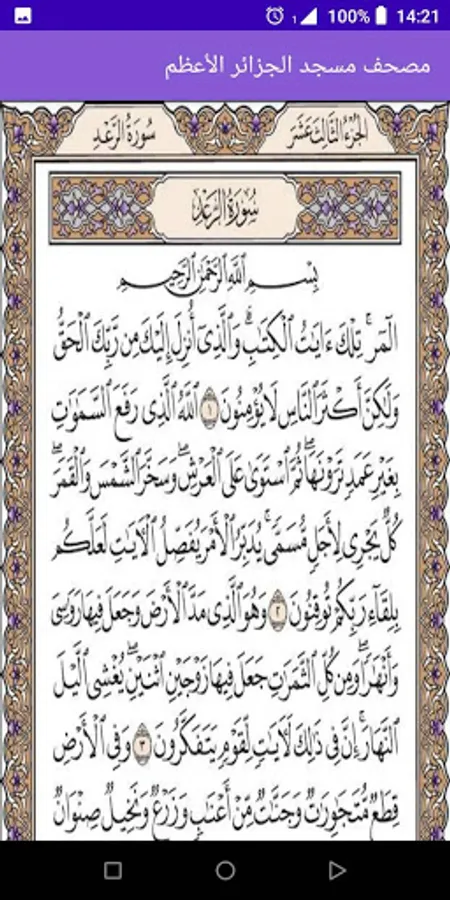 100% 14:21
مصحف مسجد الجزائر الأعظم
الجزء الثالث عشر سورة الرعد
سُورَةُ الرَّعْدِ
بِسْمِ اللَّهِ الرَّحْمَٰنِ الرَّحِيمِ
الٓمٓر تِلْكَ ءَايَٰتُ الْكِتَٰبِ وَالَّذِىٓ أُنزِلَ إِلَيْكَ مِن رَّبِّكَ الْحَقُّ
وَلَٰكِنَّ أَكْثَرَ النَّاسِ لَا يُؤْمِنُونَ ١ اللَّهُ الَّذِى رَفَعَ السَّمَٰوَٰتِ
بِغَيْرِ عَمَدٍ تَرَوْنَهَا ثُمَّ اسْتَوَىٰ عَلَى الْعَرْشِ وَسَخَّرَ الشَّمْسَ وَالْقَمَرَ
كُلٌّ يَجْرِى لِأَجَلٍ مُّسَمًّى يُدَبِّرُ الْأَمْرَ يُفَصِّلُ الْآيَٰتِ لَعَلَّكُم
بِلِقَآءِ رَبِّكُمْ تُوقِنُونَ ٢ وَهُوَ الَّذِى مَدَّ الْأَرْضَ وَجَعَلَ فِيهَا رَوَٰسِىَ
وَأَنْهَٰرًا وَمِن كُلِّ الثَّمَرَٰتِ جَعَلَ فِيهَا زَوْجَيْنِ اثْنَيْنِ يُغْشِى الَّيْلَ
النَّهَارَ إِنَّ فِى ذَٰلِكَ لَآيَٰتٍ لِّقَوْمٍ يَتَفَكَّرُونَ ٣ وَفِى الْأَرْضِ
قِطَعٌ مُّتَجَٰوِرَٰتٌ وَجَنَّٰتٌ مِّنْ أَعْنَٰبٍ وَزَرْعٌ وَنَخِيلٌ صِنْوَانٌ